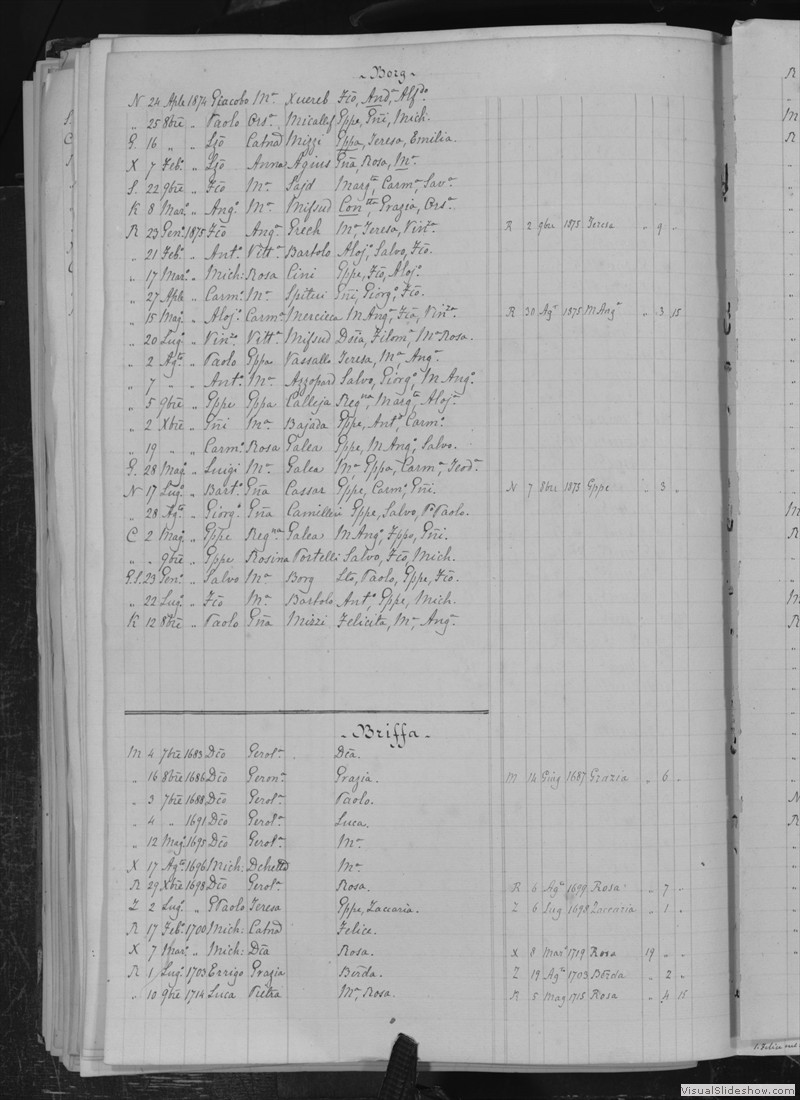 ~Borg~
N 24 Aple 1874 Giacobo Mª Xuereb Fcō, Andª, Alfdº.
„ 25 8bre „ Paolo Orsª Micallef Gppe, Gñi, Mich.
G. 16 „ „ Ljō Catnª Mizzi Gppa, Teresa, Emilia.
X 7 Febº „ Ljō Anna Agius Gña, Rosa, Mª.
S. 22 9bre „ Fcō Mª Sajd Margta, Carmº, Savª.
K 8 Marº „ Angº Mª Mifsud Contta, Grazia, Orsª.
R 23 Genº 1875 Fcō Angª Grech Mª, Teresa, Vinza. R 2 9bre 1875 Teresa „ 9 „
„ 21 Febº „ Antº Vittª Bartolo Alojº, Salvo, Fcō.
„ 17 Marº „ Mich: Rosa Cini Gppe, Fcō, Alojº.
„ 27 Aple „ Carmº Mª Spiteri Gñi, Giorgº, Fcō.
„ 15 Magº „ Alojº Carmª Mercieca M Angª, Fcā, Vinza. R 30 Agº 1875 M Angª „ 3 15
„ 20 Lugº „ Vinzo Vittª Mifsud Dcīa, Filomª, Mª Rosa.
„ 2 Agto „ Paolo Gppa Vassallo Teresa, Mª, Angª.
„ 7 „ „ Antº Mª Azzopard Salvo, Giorgº, M Angº.
„ 5 9bre „ Gppe Gppa Calleja Regna, Margta, Alojª.
„ 2 Xbre „ Gñi Mª Bajada Gppe, Antº, Carmº.
„ 19 „ „ Carmº Rosa Galea Gppe, M Angº, Salvo.
G. 28 Magº „ Luigi Mª Galea Mª, Gppa, Carmª, Teodª.
N 17 Lugº „ Bartº Gña Cassar Gppe, Carmº, Gñi. N 7 8bre 1875 Gppe „ 3 „
„ 28 Agto „ Giorgº Gña Camilleri Gppe, Salvo, P. Paolo.
C 2 Magº „ Gppe Regna Galea M Angº, Fppo, Gñi.
„ „ 9bre „ Gppe Rosina Portelli Salvo, Fcō, Mich.
G.S. 23 Genº „ Salvo Mª Borg Lto, Paolo, Gppe, Fcō.
„ 22 Lugº „ Fcō Mª Bartolo Antº, Gppe, Mich.
K 12 8bre „ Paolo Gña Mizzi Felicita, Mª, Angª.
-Briffa-
M 4 7bre 1683 Dcō Gerolª Dcīa.
„ 16 8bre 1686 Dcō Geronª Grazia. M 14 Giug 1687 Grazia „ 6 „
„ 3 7bre 1688 Dcō Gerolª Paolo.
„ 4 „ 1691 Dcō Gerolª Luca.
„ 12 Magº 1695 Dcō Gerolª Mª.
X 17 Agto 1696 Mich: Dchetta Mª.
R 29 Xbre 1698 Dcō Gerolª Rosa. R 6 Agto 1699 Rosa „ 7 „
Z 2 Lugº „ P Paolo Teresa Gppe, Zaccaria. Z 6 Lug 1698 Zaccaria „ 1 „
R 17 Febº 1700 Mich: Catnª Felice.
X 7 Marº „ Mich: Dcīa Rosa. X 8 Marº 1719 Rosa 19 „ „
R 1 Lugº 1703 Errigo Grazia Bērda. Z 19 Agto 1703 Bērda „ 2 „
„ 10 9bre 1714 Luca Pietra Mª Rosa. R 5 Mag 1715 Rosa „ 4 15
VisualSlideshow.com